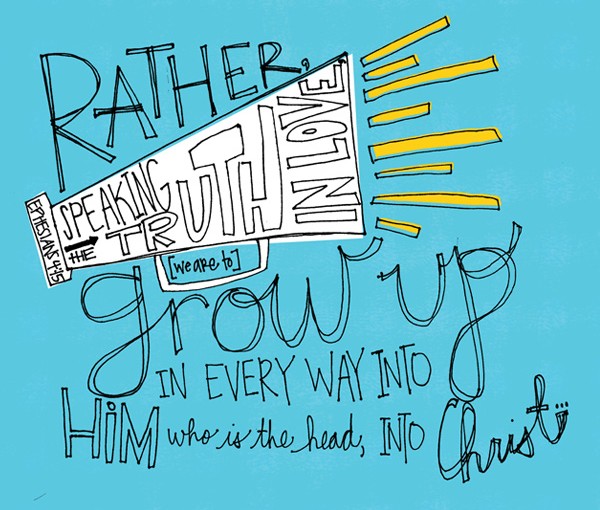 RATHER,
EPHESIANS 4:15
SPEAKING
THE TRUTH
IN LOVE,
[we are to]
grow up
IN EVERY WAY INTO
HiM who is the head, INTO Christ